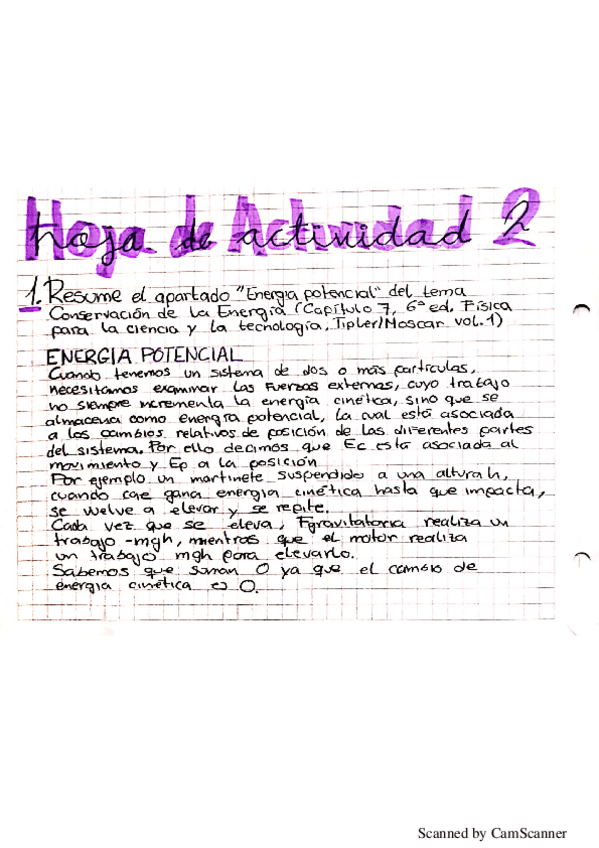 Hoja de actividad 2
1. Resume el apartado "Energía potencial" del tema
Conservación de la Energía (Capítulo 7, 6ª ed. Física
para la ciencia y la tecnología, Tipler/Moscar vol. 1)
ENERGIA POTENCIAL
Cuando tenemos un sistema de dos o más partículas,
necesitamos examinar las fuerzas externas, cuyo trabajo
no siempre incrementa la energía cinética, sino que se
almacena como energía potencial, la cual está asociada
a los cambios relativos de posición de las diferentes partes
del sistema. Por ello decimos que Ec está asociada al
movimiento y Ep a la posición
Por ejemplo un martinete suspendido a una altura h,
cuando cae gana energia cinética hasta que impacta,
se vuelve a elevar y se repite.
Cada vez que se eleva, Fgravitatoria realiza un
trabajo -mgh, mientras que el motor realiza
un trabajo mgh para elevarlo.
Sabemos que suman 0 ya que el cambio de
energía cinética es 0.
Scanned by CamScanner